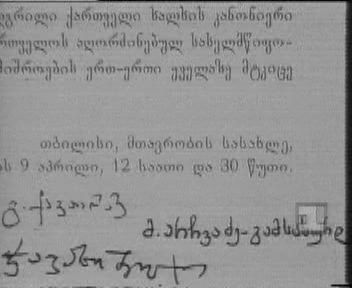 ეგრილი ქართველი ხალხის კანონიერი
რთველოს აღორძინებულ სახელმწიფო-
შიშროების ერთ-ერთი ყველაზე მტკიცე
თბილისი, მთავრობის სასახლე,
ის 9 აპრილი, 12 საათი და 30 წუთი.
მ. არჩვაძე-გამსახურდ